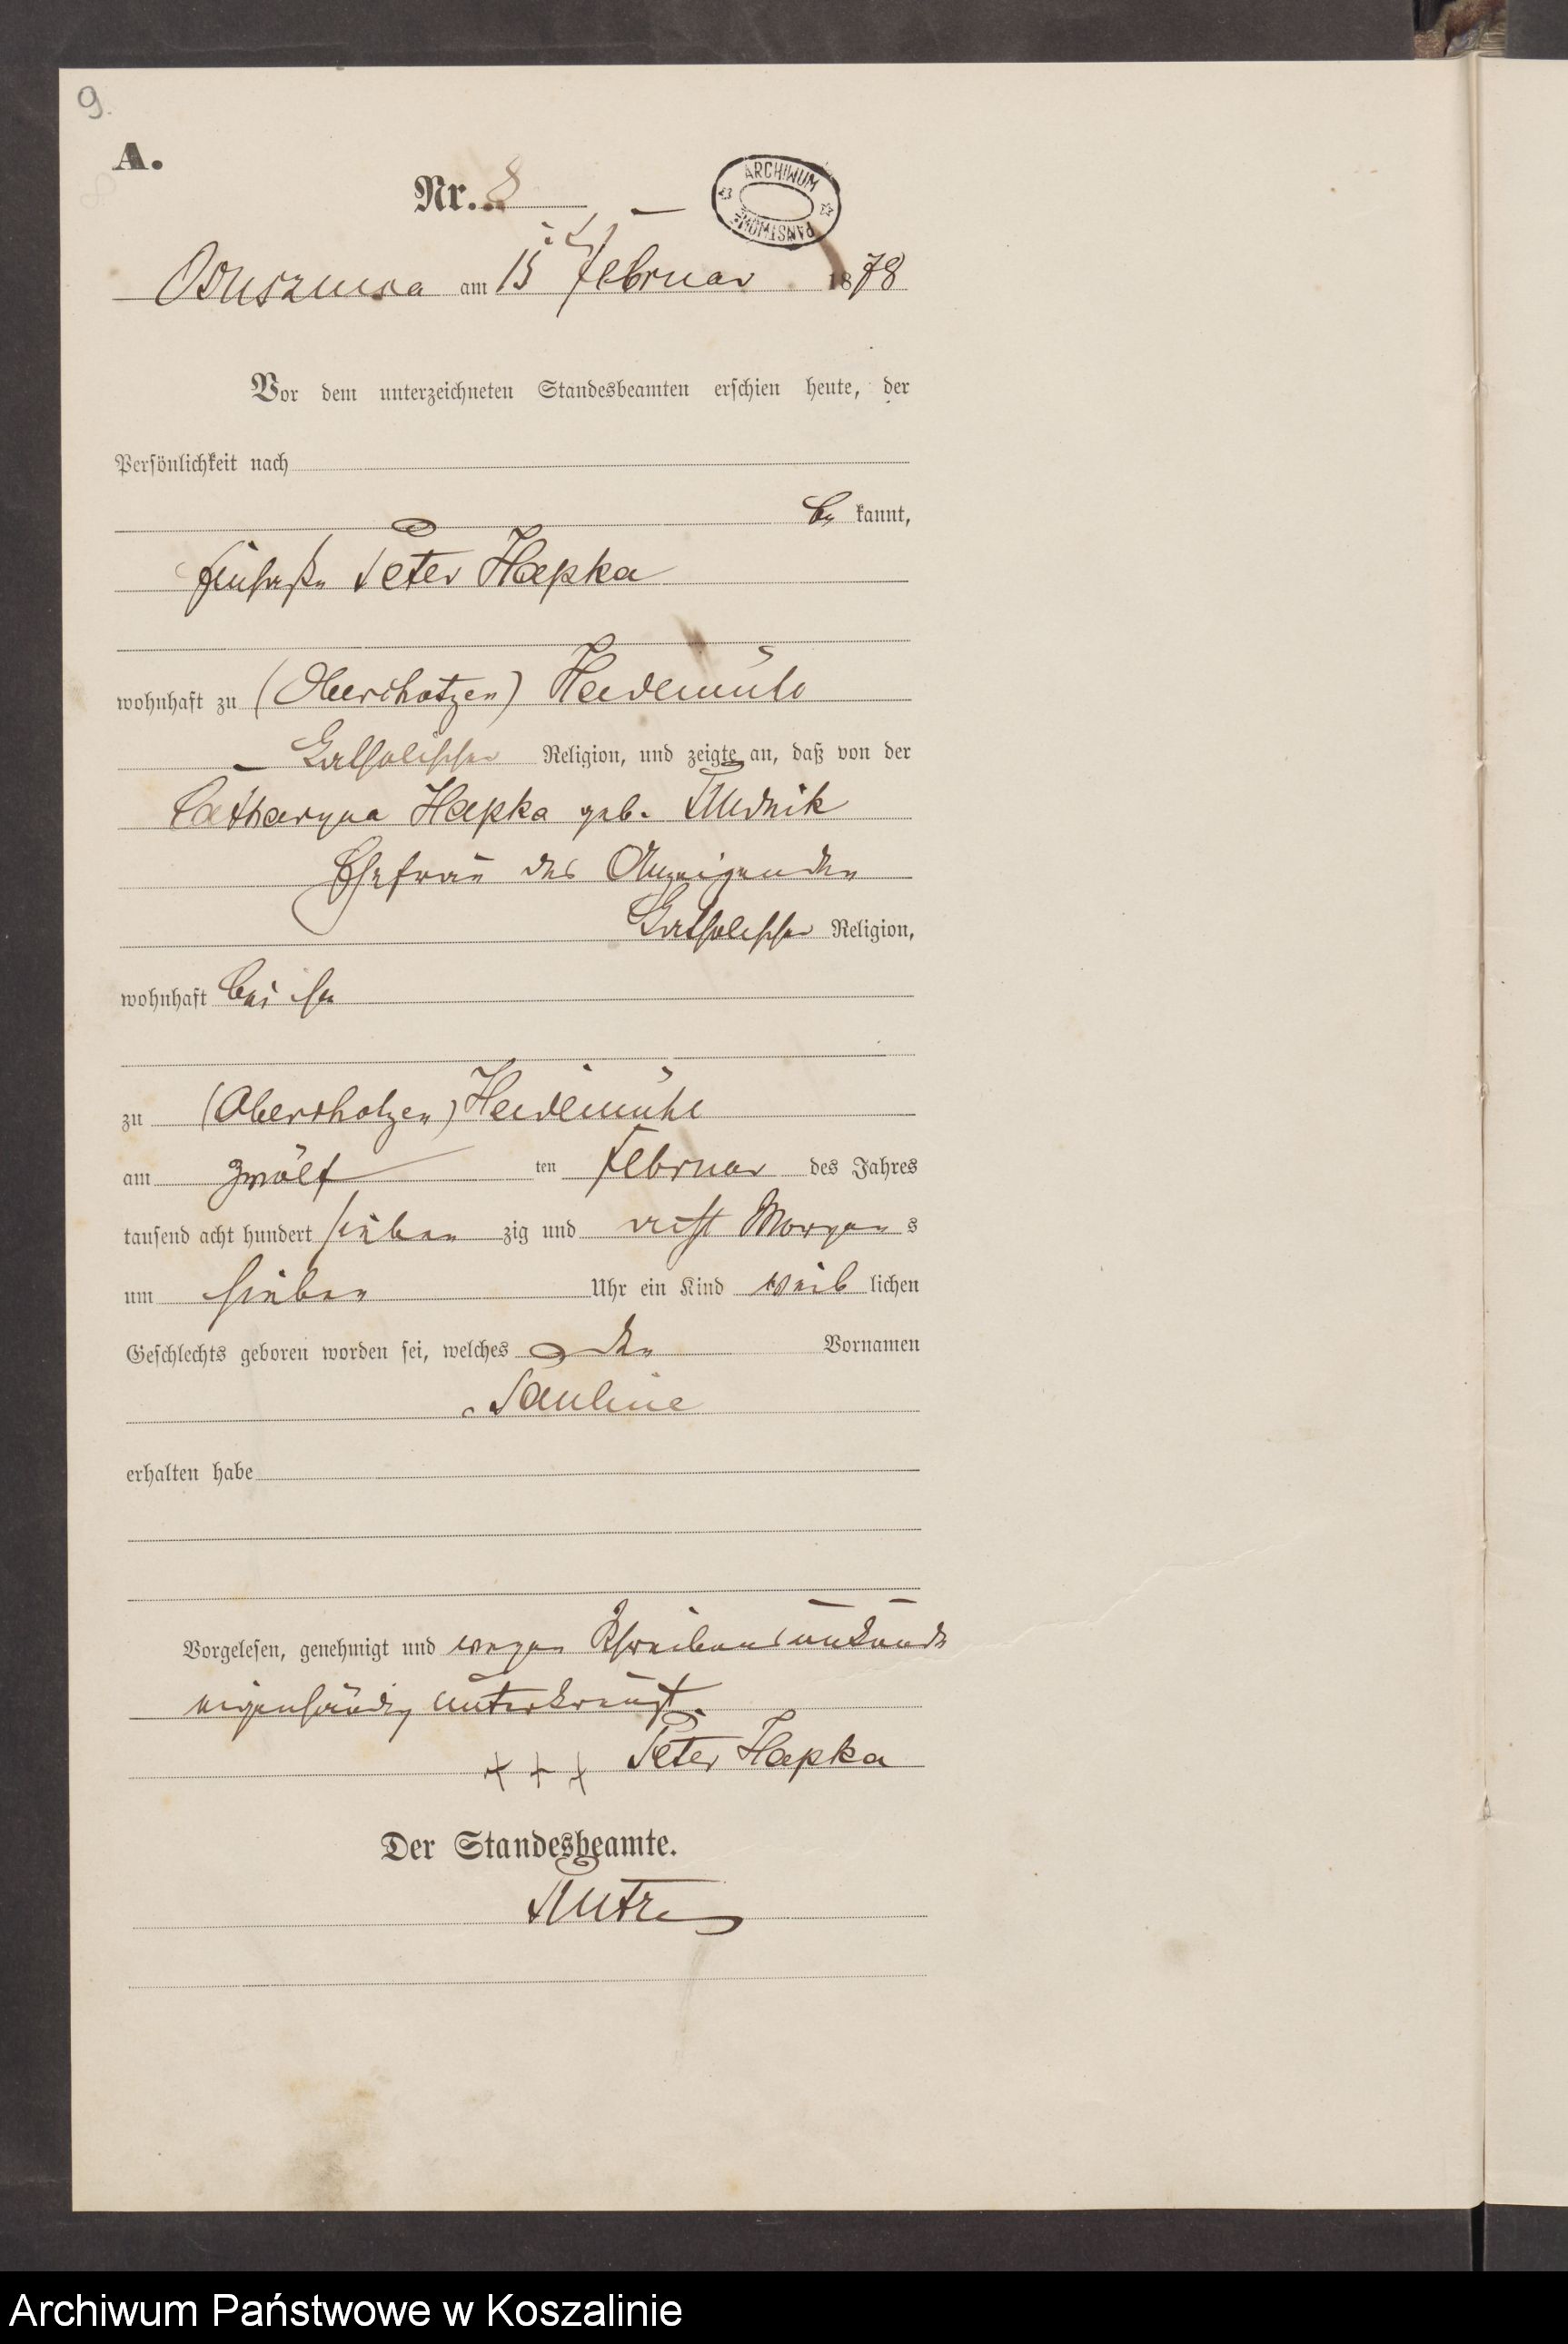 9.
A.
Nr. 8
ARCHIWUM PAŃSTWOWE
am 15 Februar 1878
Vor dem unterzeichneten Standesbeamten erschien heute, der
Persönlichkeit nach
be kannt,
Peter Hapka
wohnhaft zu (Oberschotzen) Heidemühl
Katholischer Religion, und zeigte an, daß von der
Catharyna Hapka geb. Rudnik
Ehefrau des Anzeigenden
Katholischer Religion,
wohnhaft bei ihm
zu (Oberschotzen) Heidemühl
am zwölf ten Februar des Jahres
tausend acht hundert sieben zig und acht Morgens
um sieben Uhr ein Kind weib lichen
Geschlechts geboren worden sei, welches den Vornamen
Pauline
erhalten habe
Vorgelesen, genehmigt und wegen Schreibensunkunde
eigenhändig unterkreuzt.
+ + + Peter Hapka
Der Standesbeamte.
Archiwum Państwowe w Koszalinie